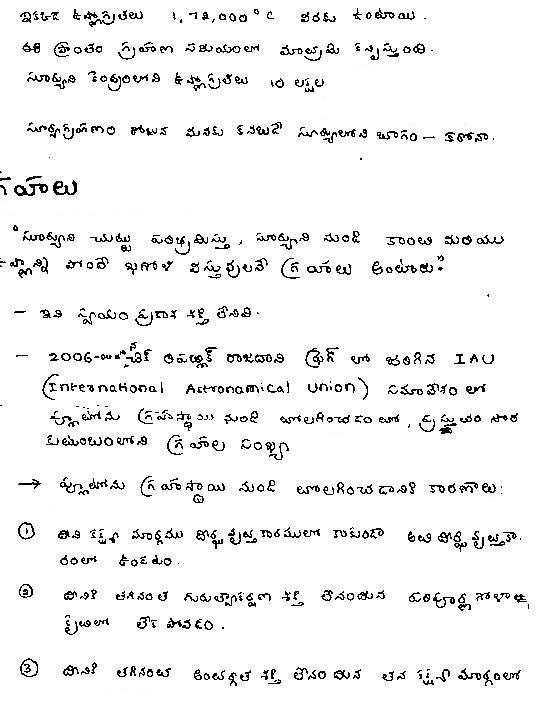 ఇక్కడ ఉష్ణోగ్రతలు 1,72,000°C వరకు ఉంటాయి.
ఈ ప్రాంతం గ్రహణ సమయంలో మాత్రమే కన్పిస్తుంది.
సూర్యుని కేంద్రంలోని ఉష్ణోగ్రతలు 10 లక్షల
సూర్యగ్రహణం రోజున మనకు కనబడే సూర్యునిలోని భాగం – కరోనా.
గ్రహాలు
"సూర్యుని చుట్టు పరిభ్రమిస్తు, సూర్యుని నుండి కాంతి మరియు
ఉష్ణాన్ని పొందే ఖగోళ వస్తువులనే గ్రహాలు అంటారు."
– ఇవి స్వయం ప్రకాశ శక్తి లేనివి.
– 2006-లో చెక్ రిపబ్లిక్ రాజధాని ప్రేగ్ లో జరిగిన IAU
(International Astronomical Union) సమావేశం లో
ప్లూటోను గ్రహస్థాయి నుండి తొలగించడం తో, ప్రస్తుతం సౌర
కుటుంబంలోని గ్రహాల సంఖ్య
→ ప్లూటోను గ్రహస్థాయి నుండి తొలగించడానికి కారణాలు:
① దీని కక్ష్యా మార్గము దీర్ఘవృత్తాకారములో కాకుండా అతి దీర్ఘవృత్తాకా
రంలో ఉండటం.
② దీనికి తగినంత గురుత్వాకర్షణ శక్తి లేనందున పరిపూర్ణ గోళాకృ
స్థితిలో లేక పోవడం.
③ దీనికి తగినంత అంతర్గత శక్తి లేనందున తన కక్ష్యా మార్గంలో